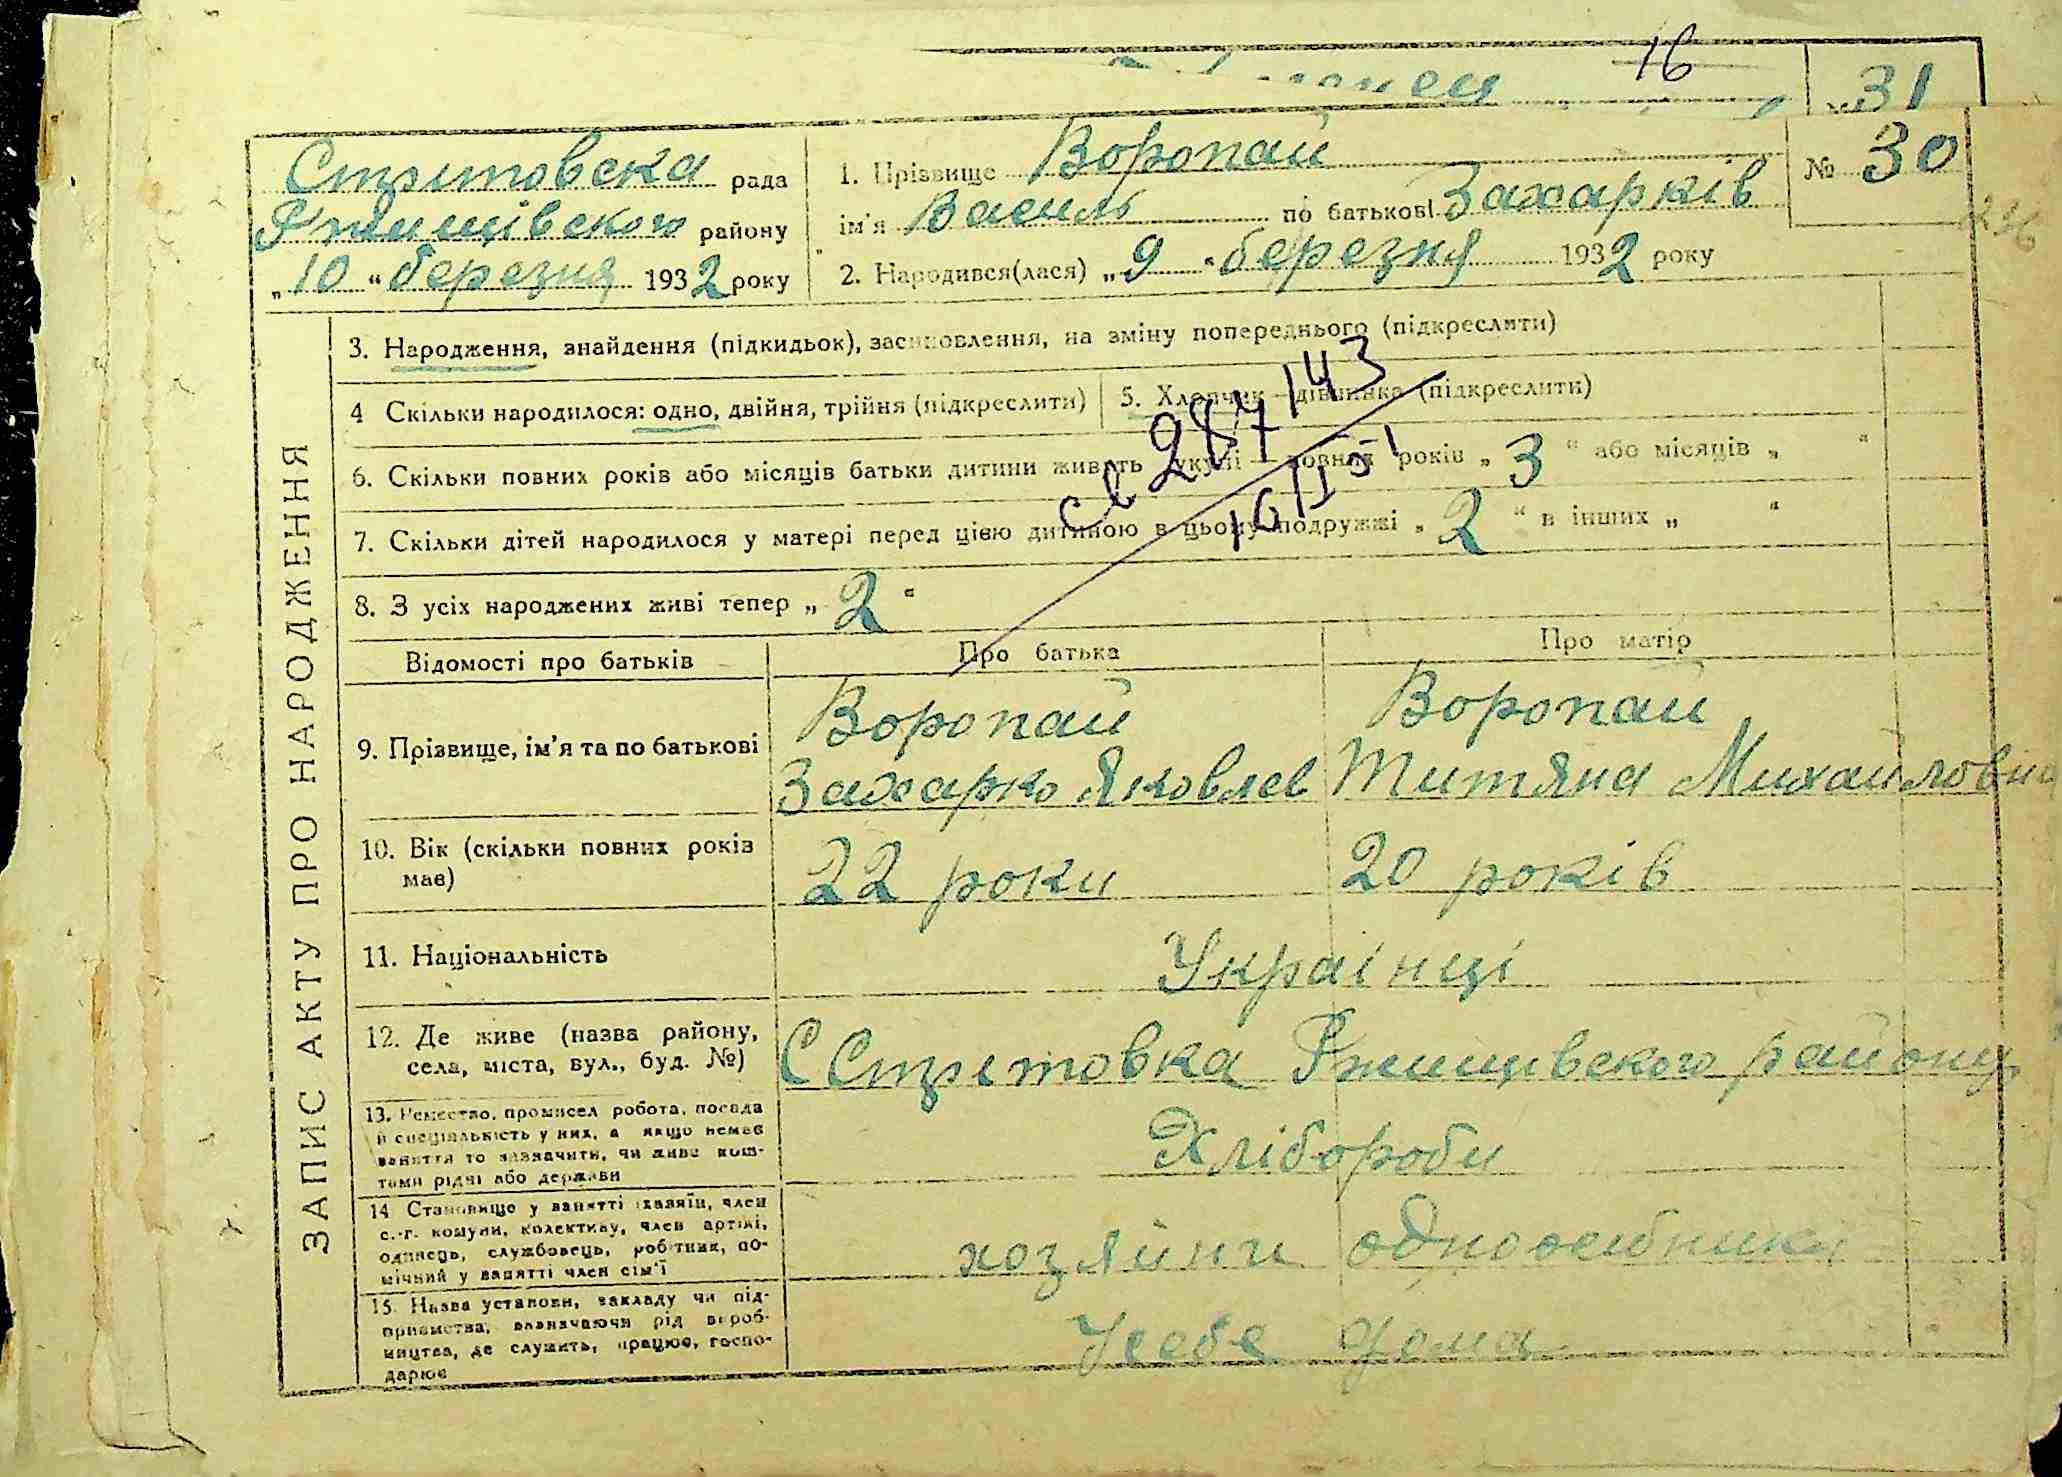 16
31
Стритовска рада
Ржищівского району
„10“ березня 1932 року
1. Прізвище Воропай
ім'я Василь по батькові Захарків
2. Народився(лася) „9“ березня 1932 року
№ 30
ЗАПИС АКТУ ПРО НАРОДЖЕННЯ
3. Народження, знайдення (підкидьок), засиновлення, на зміну попереднього (підкреслити)
4 Скільки народилося: одно, двійня, трійня (підкреслити)
5. Хлопчик — дівчинка (підкреслити)
6. Скільки повних років або місяців батьки дитини живуть укупі — повних років „3“ або місяців „ “
7. Скільки дітей народилося у матері перед цією дитиною в цьому подружжі „2“ в інших „ “
8. З усіх народжених живі тепер „2“
287143
16/I 51
Відомості про батьків
Про батька
Про матір
9. Прізвище, ім'я та по батькові
Воропай
Захарко Яковлев
Воропай
Титяна Михайловна
10. Вік (скільки повних років має)
22 роки
20 років
11. Національність
Українці
12. Де живе (назва району,
села, міста, вул., буд. №)
С Стритовка Ржищівского району
13. Ремество, промисел робота, посада
й спеціяльність у них, а якщо немає
заняття то зазначити, чи живе кош-
тами рідні або держави
Хлібороби
14. Становище у занятті хазяїн, член
с.-г. комуни, колективу, член артілі,
одинець, службовець, робітник, по-
мічний у занятті член сім'ї
хозяїни одноосібники
15. Назва установи, закладу чи під-
приємства, визначаючи рід вироб-
ництва, де служить, працює, госпо-
дарює
У себе дома